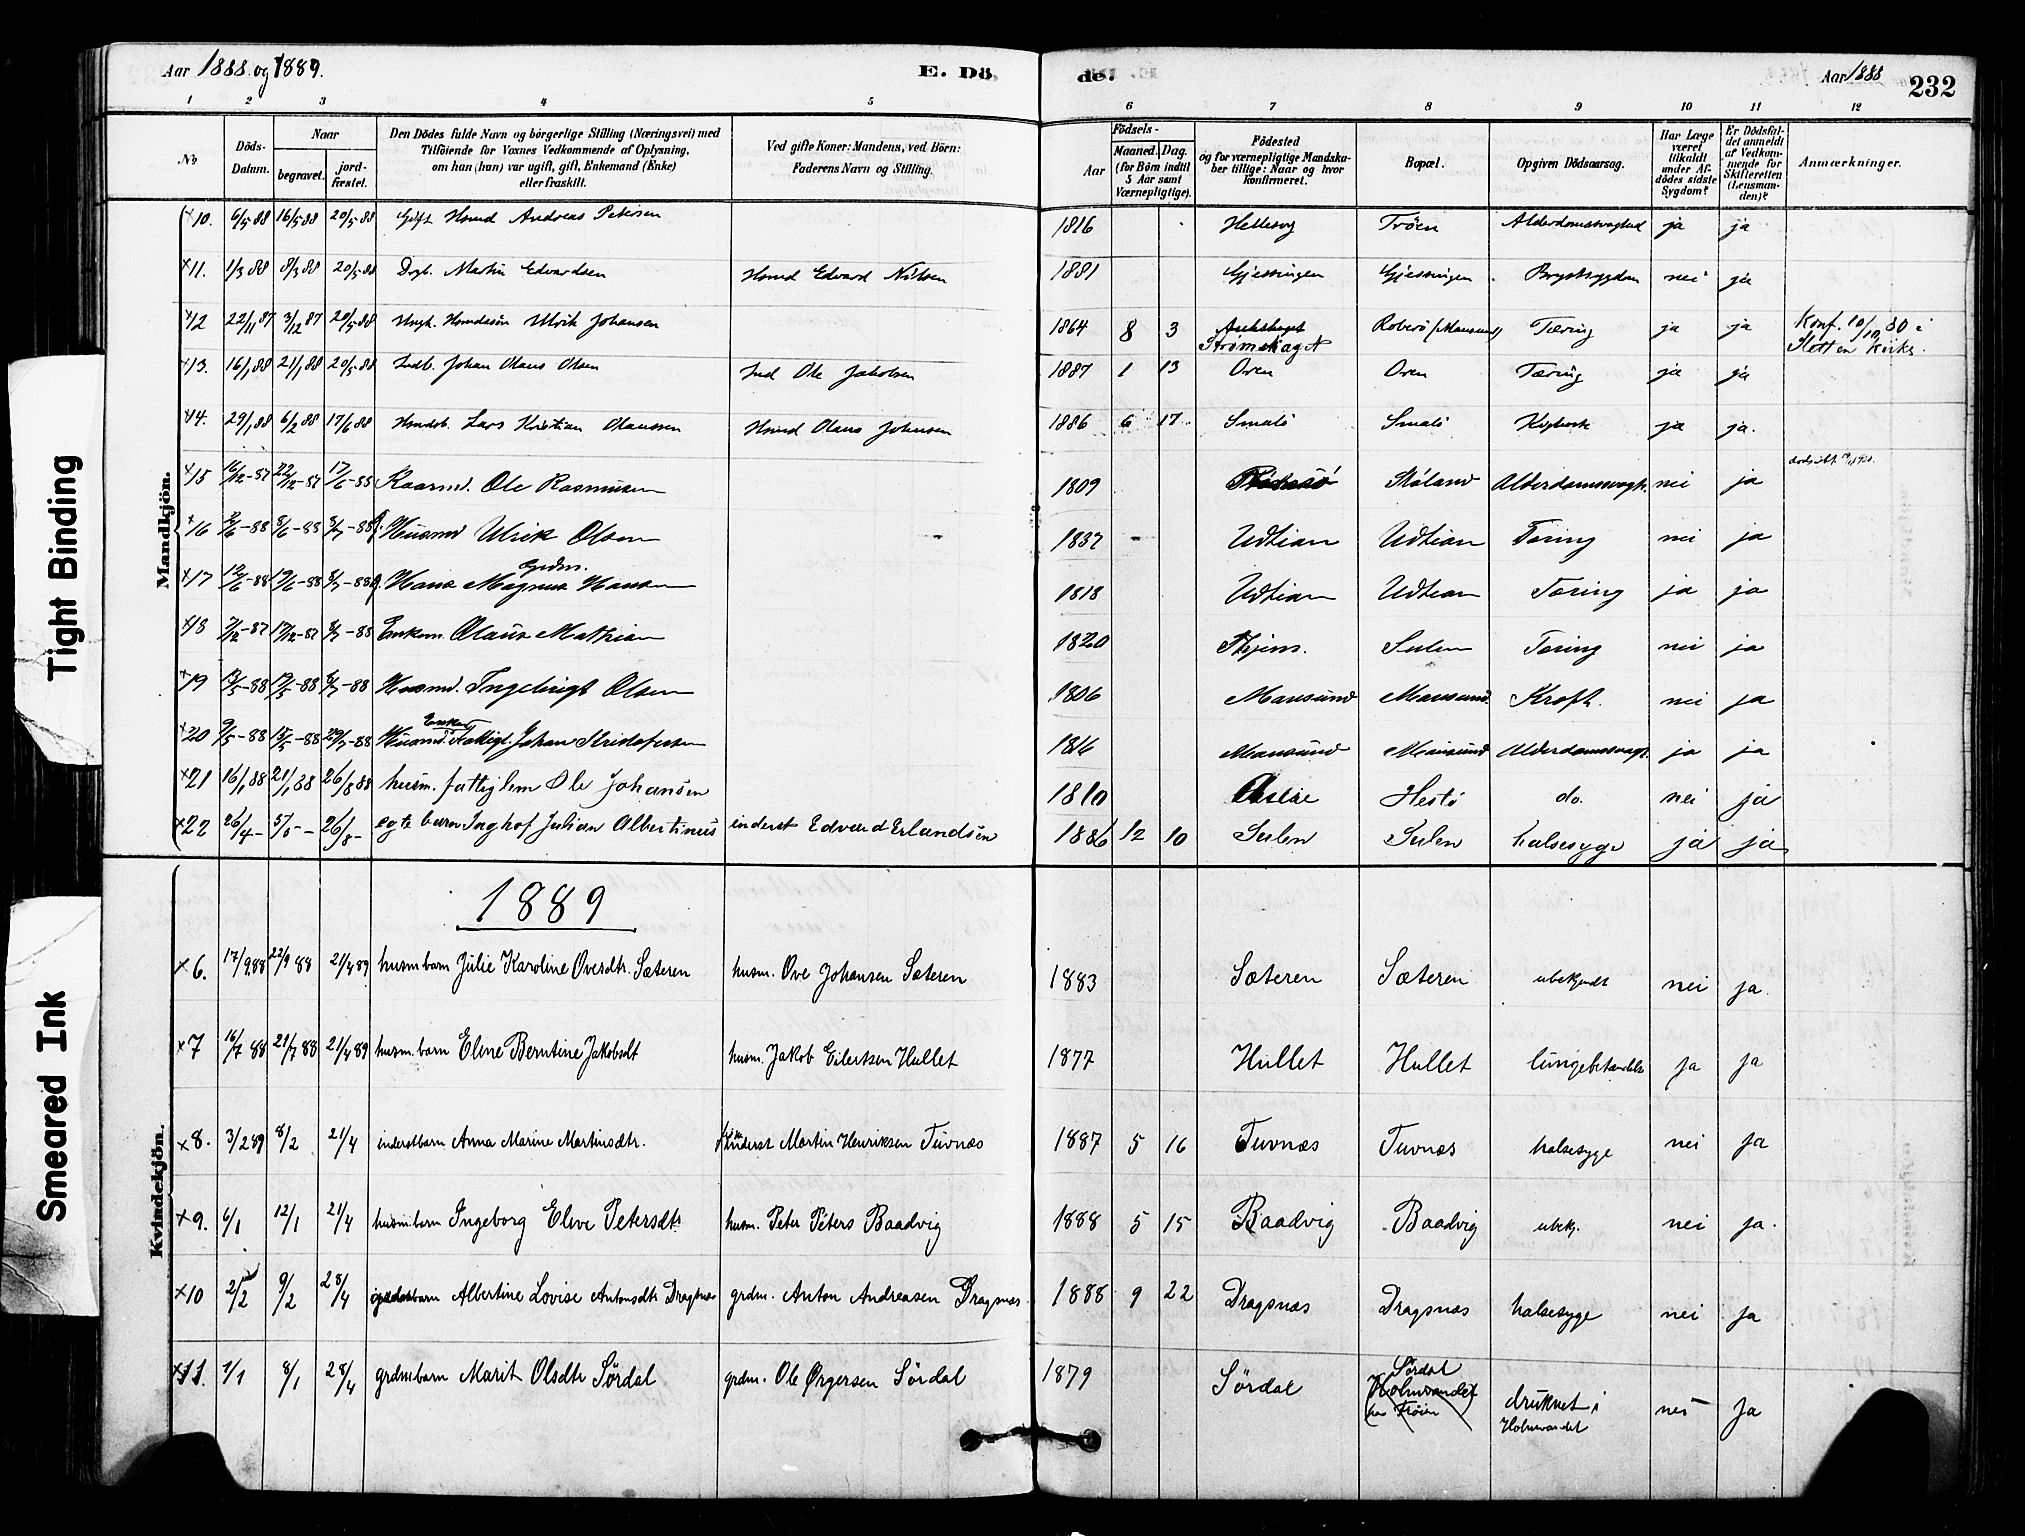 Aar 1888 og 1889.
E. Dö
de.
Aar 1888
232
1 2 3 4 5 6 7 8 9 10 11 12
No
Döds-Datum.
Naar
begravet.
jord-fæstet.
Den Dödes fulde Navn og börgerlige Stilling (Næringsvei) med
Tilföiende for Voxnes Vedkommende af Oplysning,
om han (hun) var ugift, gift, Enkemand (Enke)
eller fraskilt.
Ved gifte Koner: Mandens, ved Börn:
Faderens Navn og Stilling.
Födsels-
Aar
Maaned. Dag.
(for Börn indtil
5 Aar samt
Værnepligtige).
Födested
og for værnepligtige Mandska-
ber tillige: Naar og hvor
Konfirmeret.
Bopæl.
Opgiven Dödsaarsag.
Har Læge
været
tilkaldt
under Af-
dödes sidste
Sygdom?
Er Dödsfal-
det anmeldt
af Vedkom-
mende for
Skifteretten
(Lensman-
den)?
Anmærkninger.
Mandkjön.
10. 6/5 88 16/5 88 20/5 88 Gift Husmd Andreas Petersen 1816 Hellesvig Tröen Alderdomssvaghed ja ja
11. 1/3 88 8/3 88 20/5 88 Martin Edvardsen Husmd Edvard Nilsen 1881 Gjessingen Gjessingen Brystsygdom nei ja
12 22/11 87 3/12 87 20/5 88 Ungk. Ulrik Johansen 1864 8 3 Strömskaget (Mausund) Tæring ja ja Konf. 10/10 80 i Sletten Kirke.
13. 16/1 88 21/1 88 20/5 88 Indb. Johan Olaus Olsen Ind Ole Jakobsen 1887 1 13 Oven Oven Tæring ja ja
14. 29/1 88 6/2 88 17/6 88 Husmdsb. Lars Kristian Olaussen Husmd Olaus Johnsen 1886 6 17 Smalö Smalö Kighoste ja ja.
15 16/12-87 22/12-87 17/6-88 Kaarmd. Ole Rasmussen 1809 Stöland Alderdomssvagh. nei ja
16 2/6-88 8/6-88 8/7-88 Husmd Ulrik Olsen 1837 Udtian Udtian Tæring nei ja
17 12/6-88 19/6-88 8/7-88 Grdm. Hans Magnus Hansen 1818 Udtian Udtian Tæring ja ja
18 7/12-87 17/12-87 8/7-88 Enkem. Olaus Mathias 1820 Sulen Tæring nei ja
19 13/5-88 19/5-88 8/7-88 Husmd. Ingebrigt Olsen 1806 Mausund Mausund Kræft. nei ja
20 9/5-88 15/5-88 29/7-88 Husmd. Enkem Fattigl. Johan Kristofersen 1816 Mausund Mausund Alderdomssvagh. ja ja
21 16/1 88 21/1 88 26/8 88 husm. fattiglem Ole Johansen 1810 Hestö do. nei ja
22 26/4- 5/5- 26/8- egte barn Inghof Julian Albertinus inderst Edvard Erlandsen 1886 12 10 Sulen Sulen halsesyge ja ja
1889
Kvindekjön.
6. 17/9 88 22/9 88 21/4 89 husmbarn Julie Karoline Ovesdtr. Sæteren husm. Ove Johansen Sæteren 1883 Sæteren Sæteren ubekjendt nei ja.
7 16/7 88 21/7 88 21/4 89 husm.barn Eline Berntine Jakobsdt husm. Jakob Eilertsen Hullet 1877 Hullet Hullet lungebetændelse ja ja
8. 3/2 89 8/2 21/4 inderstbarn Anna Marine Martinsdtr. inderst Martin Henriksen Tuvnæs 1887 5 16 Tuvnæs Tuvnæs halsesyge nei ja
9. 6/1 12/1 21/4 husmbarn Ingeborg Eline Petersdtr husm. Peter Peters Baadvig 1888 5 15 Baadvig Baadvig ubekj. nei ja.
10 2/2 9/2 28/4 Albertine Lovise Antonsdtr Dragsnæs grdm. Anton Andreasen Dragsnæs 1888 9 22 Dragsnæs Dragsnæs halsesyge nei ja
11. 1/1 8/1 28/4 grdmbarn Marit Olsdtr Sördal grdm. Ole Ørgersen Sördal 1879 Sördal Sördal (Holmvandet paa Fröien) druknet i Holmvandet nei ja
Tight Binding
Smeared Ink